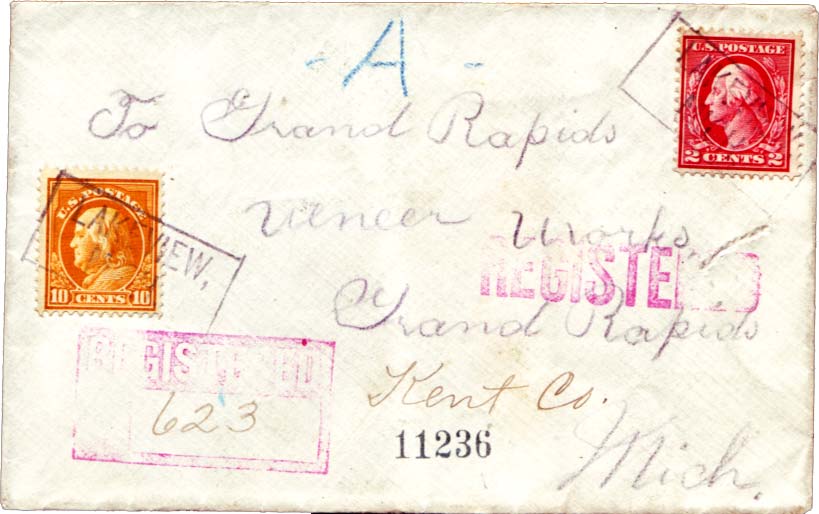 - A -
U.S. POSTAGE
2 CENTS 2
To Grand Rapids
Veneer Works,
U.S. POSTAGE
10 CENTS 10
LAKEVIEW,
REGISTERED
Grand Rapids
REGISTERED
623
Kent Co.
11236
Mich.